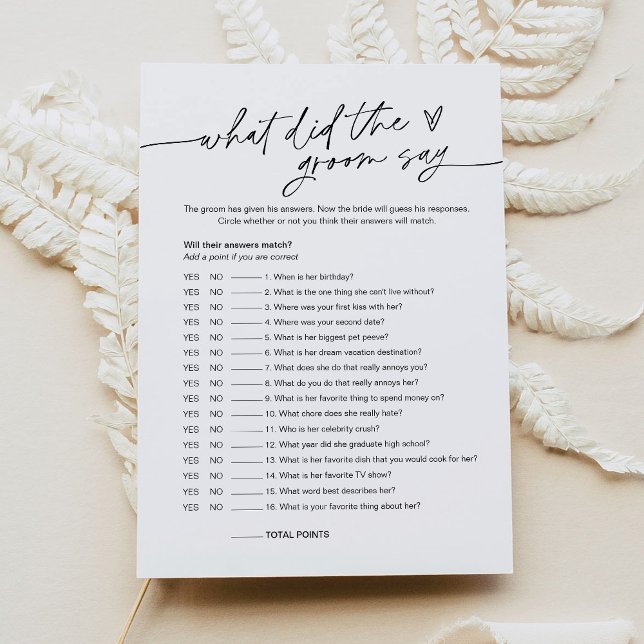 what did the
groom say
The groom has given his answers. Now the bride will guess his responses.
Circle whether or not you think their answers will match.
Will their answers match?
Add a point if you are correct
YES NO ______ 1. When is her birthday?
YES NO ______ 2. What is the one thing she can't live without?
YES NO ______ 3. Where was your first kiss with her?
YES NO ______ 4. Where was your second date?
YES NO ______ 5. What is her biggest pet peeve?
YES NO ______ 6. What is her dream vacation destination?
YES NO ______ 7. What does she do that really annoys you?
YES NO ______ 8. What do you do that really annoys her?
YES NO ______ 9. What is her favorite thing to spend money on?
YES NO ______ 10. What chore does she really hate?
YES NO ______ 11. Who is her celebrity crush?
YES NO ______ 12. What year did she graduate high school?
YES NO ______ 13. What is her favorite dish that you would cook for her?
YES NO ______ 14. What is her favorite TV show?
YES NO ______ 15. What word best describes her?
YES NO ______ 16. What is your favorite thing about her?
______ TOTAL POINTS